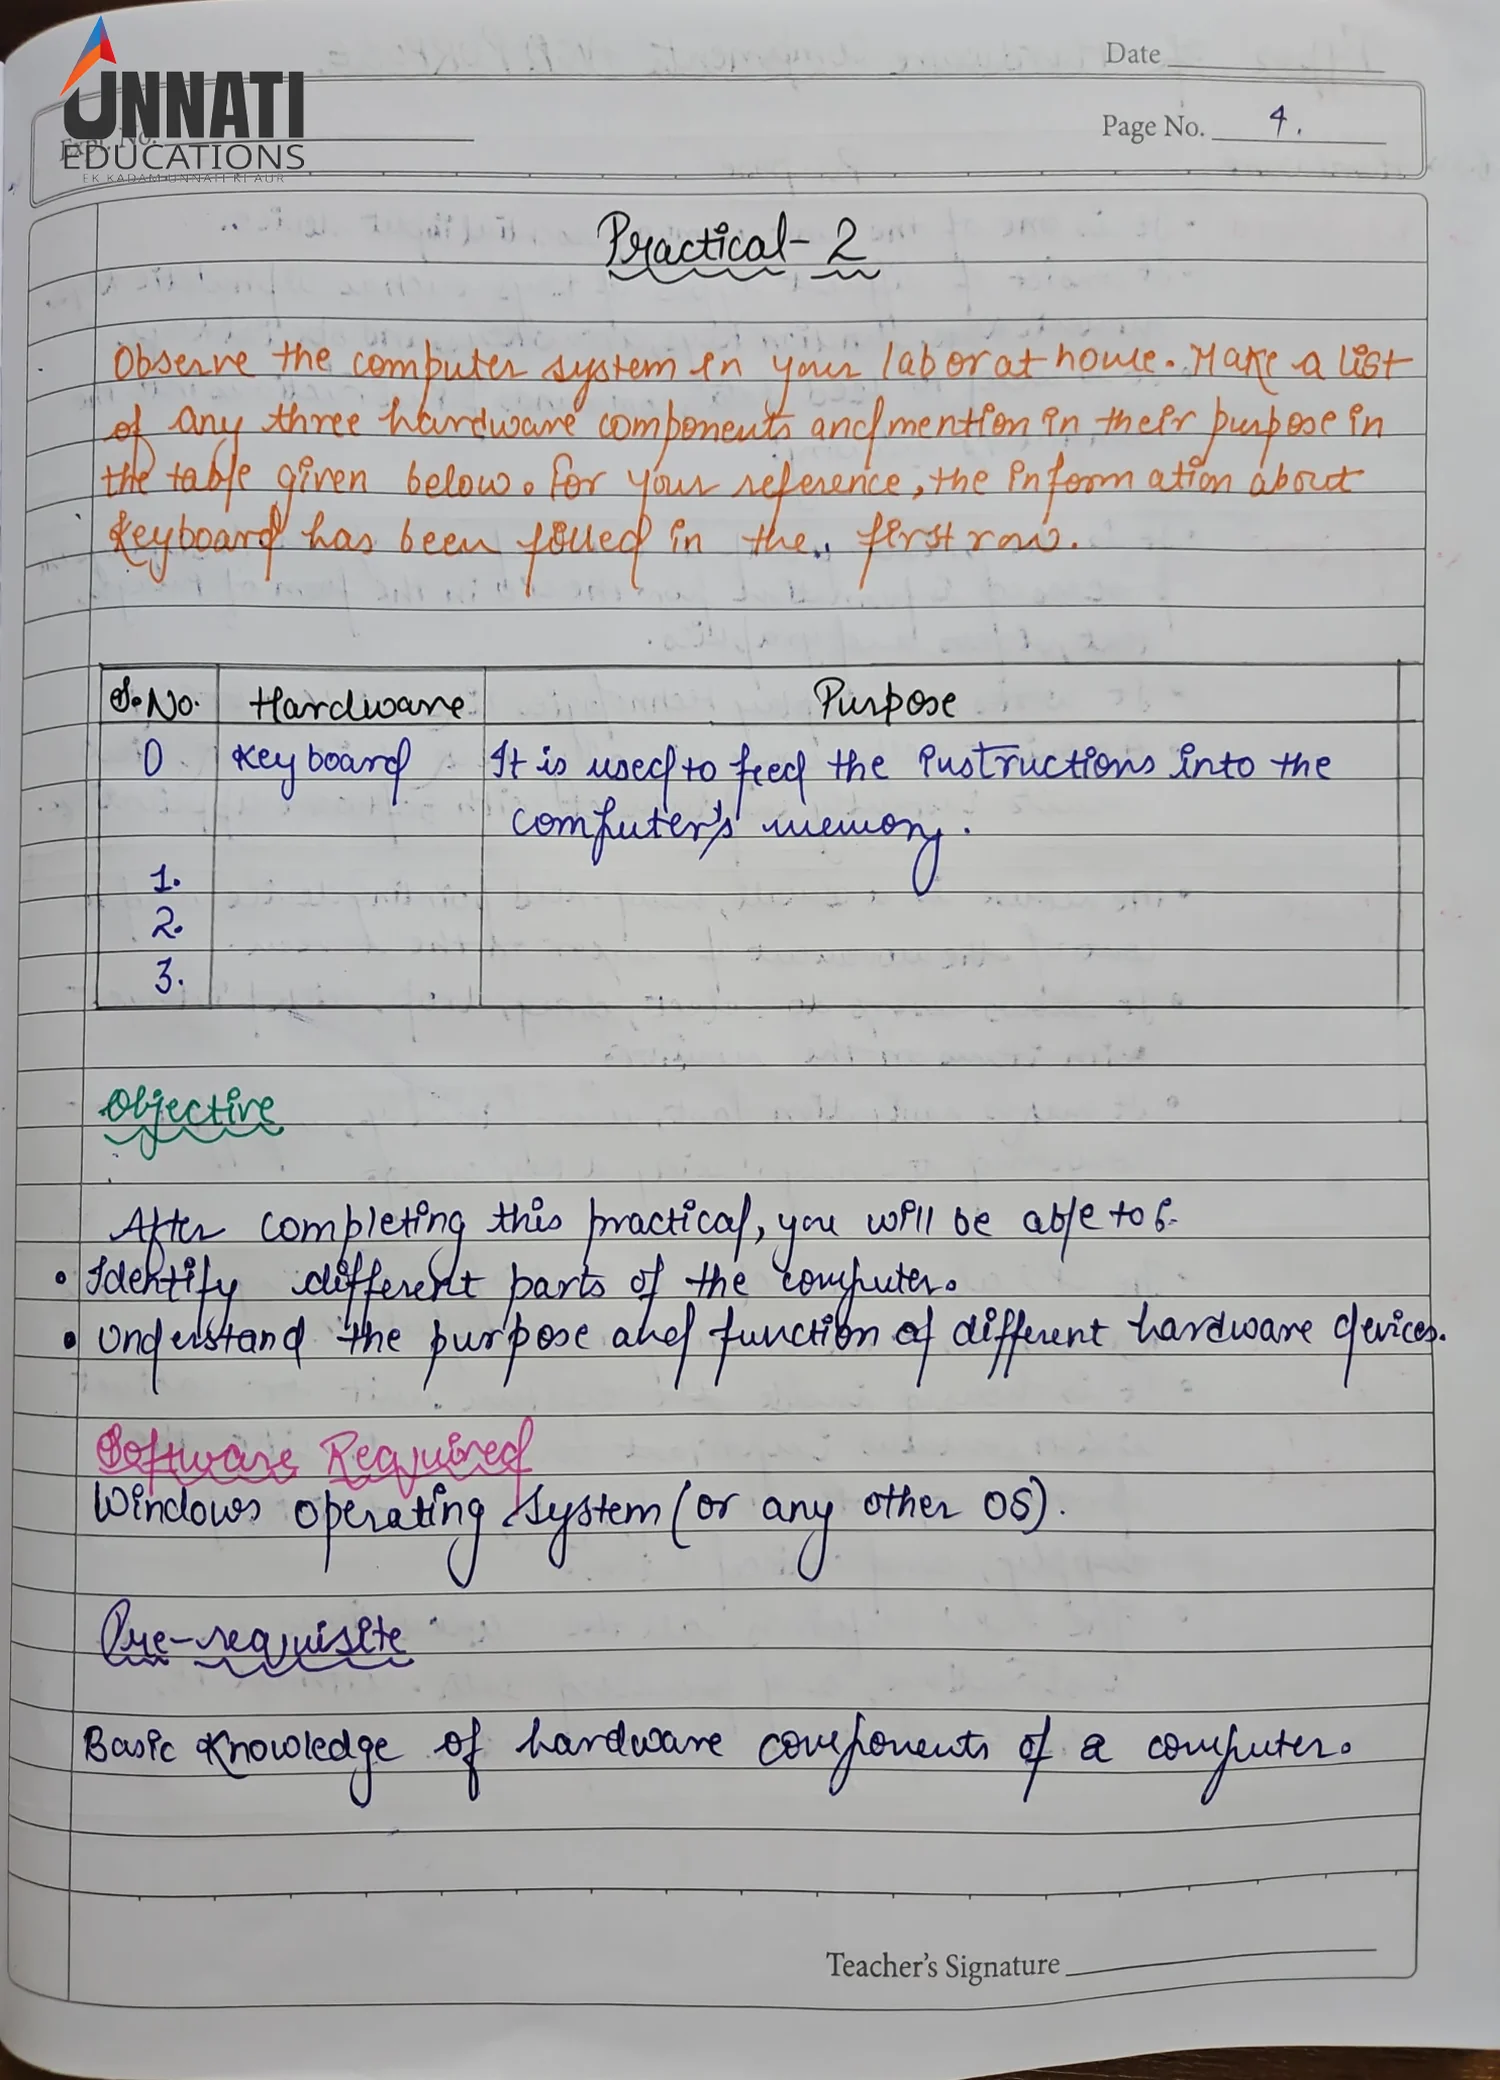 UNNATI
EDUCATIONS
EK KADAM UNNATI KI AUR
Date
Expt. No.
Page No. 4.
Practical-2
Observe the computer system in your lab or at house. Make a list
of any three hardware components and mention in their purpose in
the table given below. For your reference, the information about
keyboard has been filled in the first row.
S.No. Hardware Purpose
0 Keyboard It is used to feed the instructions into the
computer's memory.
1.
2.
3.
Objective
After completing this practical, you will be able to :-
• Identify different parts of the computer.
• Understand the purpose and function of different hardware devices.
Software Required
Windows operating system (or any other OS).
Pre-requisite
Basic Knowledge of hardware components of a computer.
Teacher's Signature